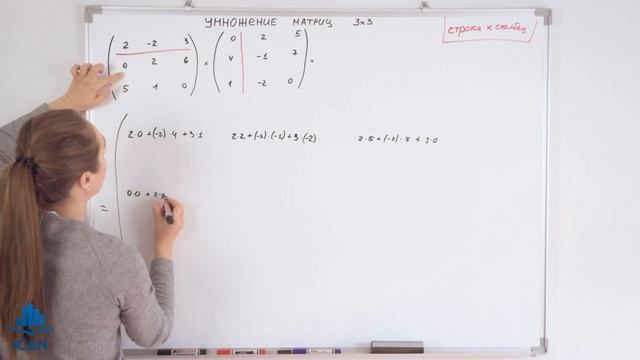 УМНОЖЕНИЕ МАТРИЦ 3х3
строка х столбец
2 -2 3 0 2 5
0 2 6 × 4 -1 7 =
5 1 0 1 -2 0
2·0+(-2)·4+3·1 2·2+(-2)·(-1)+3·(-2) 2·5+(-2)·7+3·0
= 0·0+2·
iCAN